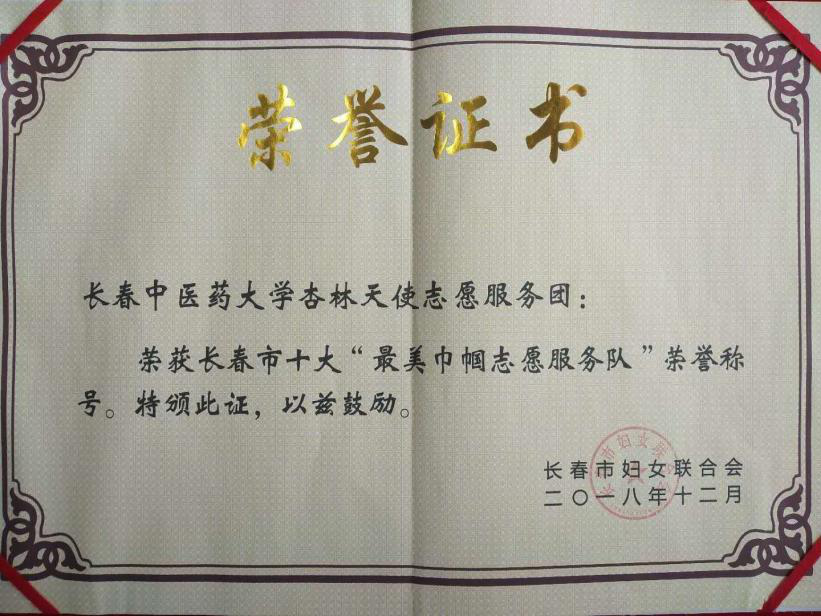 荣誉证书
长春中医药大学杏林天使志愿服务团：
荣获长春市十大“最美巾帼志愿服务队”荣誉称
号。特颁此证，以兹鼓励。
长春市妇女联合会
二〇一八年十二月